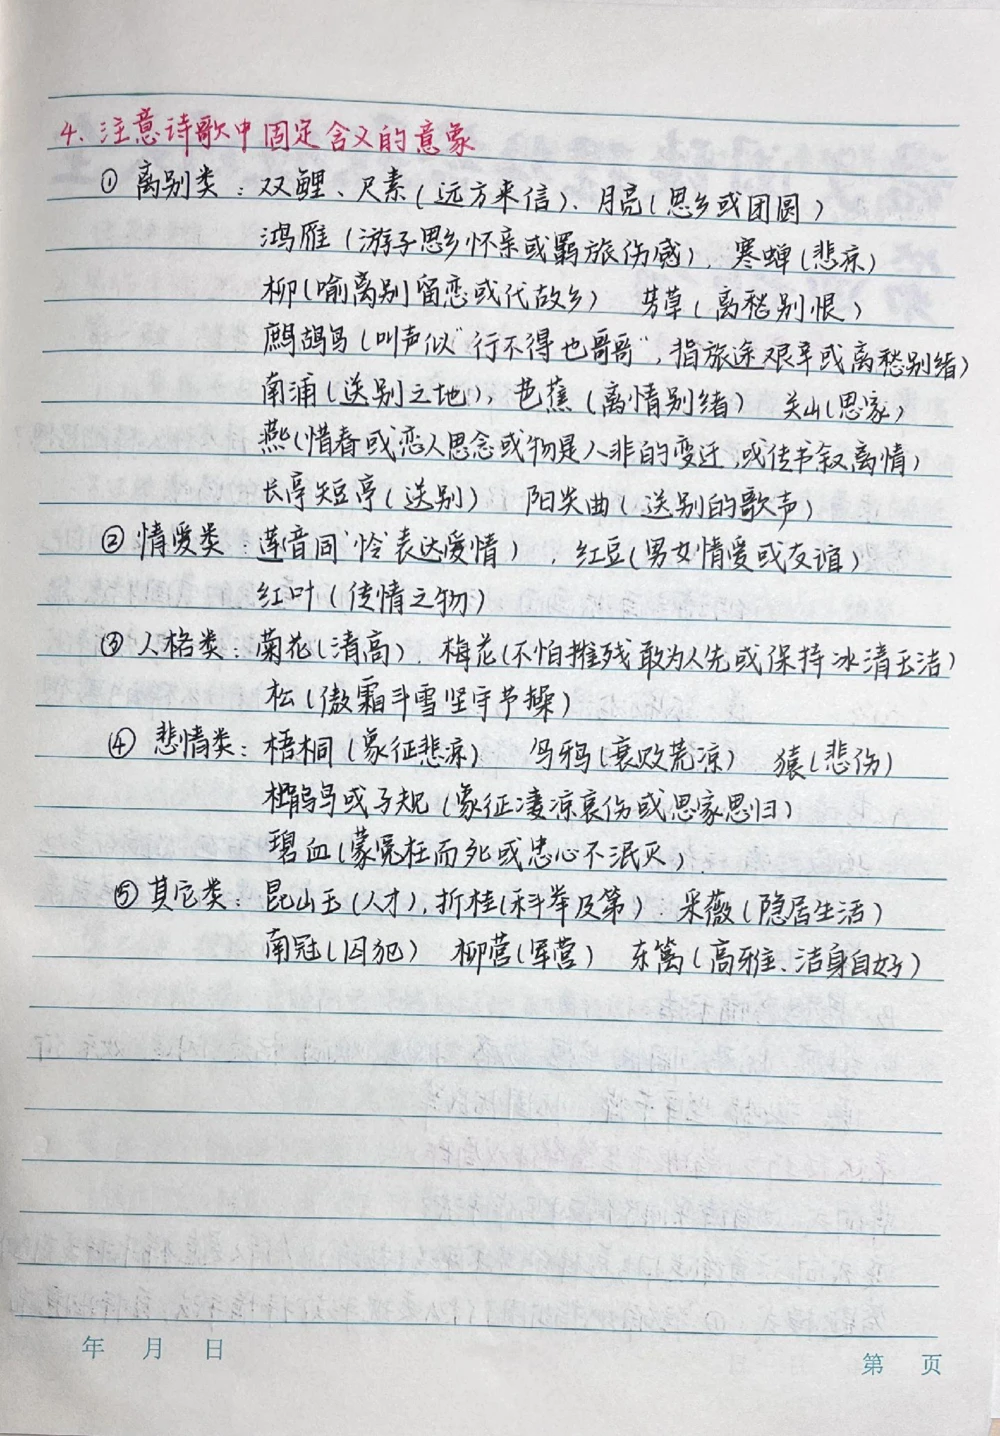 4、注意诗歌中固定含义的意象
① 离别类：双鲤、尺素(远方来信)、月亮(思乡或团圆)
鸿雁(游子思乡怀亲或羁旅伤感)，寒蝉(悲凉)
柳(喻离别留恋或代故乡) 芳草(离愁别恨)
鹧鸪鸟(叫声似"行不得也哥哥"，指旅途艰辛或离愁别绪)
南浦(送别之地)，芭蕉(离情别绪) 关山(思家)
燕(惜春或恋人思念或物是人非的变迁，或传书叙离情)
长亭短亭(送别) 阳关曲(送别的歌声)
② 情爱类：莲音同"怜"表达爱情)，红豆(男女情爱或友谊)
红叶(传情之物)
③ 人格类：菊花(清高)，梅花(不怕摧残敢为人先或保持冰清玉洁)
松(傲霜斗雪坚守节操)
④ 悲情类：梧桐(象征悲凉) 乌鸦(衰败荒凉) 猿(悲伤)
鹃鸟或子规(象征凄凉哀伤或思家思归)
碧血(蒙冤枉而死或忠心不泯灭)
⑤ 其它类：昆山玉(人才)，折桂(科举及第)．采薇(隐居生活)
南冠(囚犯) 柳营(军营) 东篱(高雅、洁身自好)
年 月 日
第 页